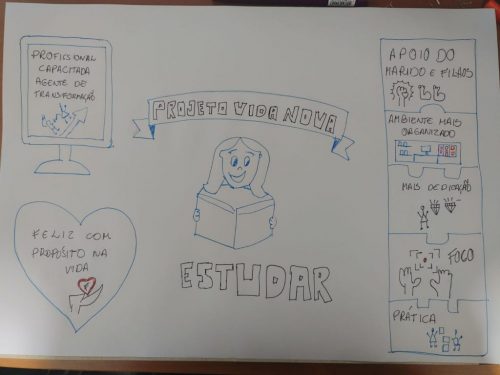 PROFISSIONAL
CAPACITADA
AGENTE DE
TRANSFORMAÇÃO
PROJETO VIDA NOVA
ESTUDAR
FELIZ COM
PROPÓSITO NA
VIDA
APOIO DO
MARIDO E FILHOS
AMBIENTE MAIS
ORGANIZADO
MAIS DEDICAÇÃO
FOCO
PRÁTICA